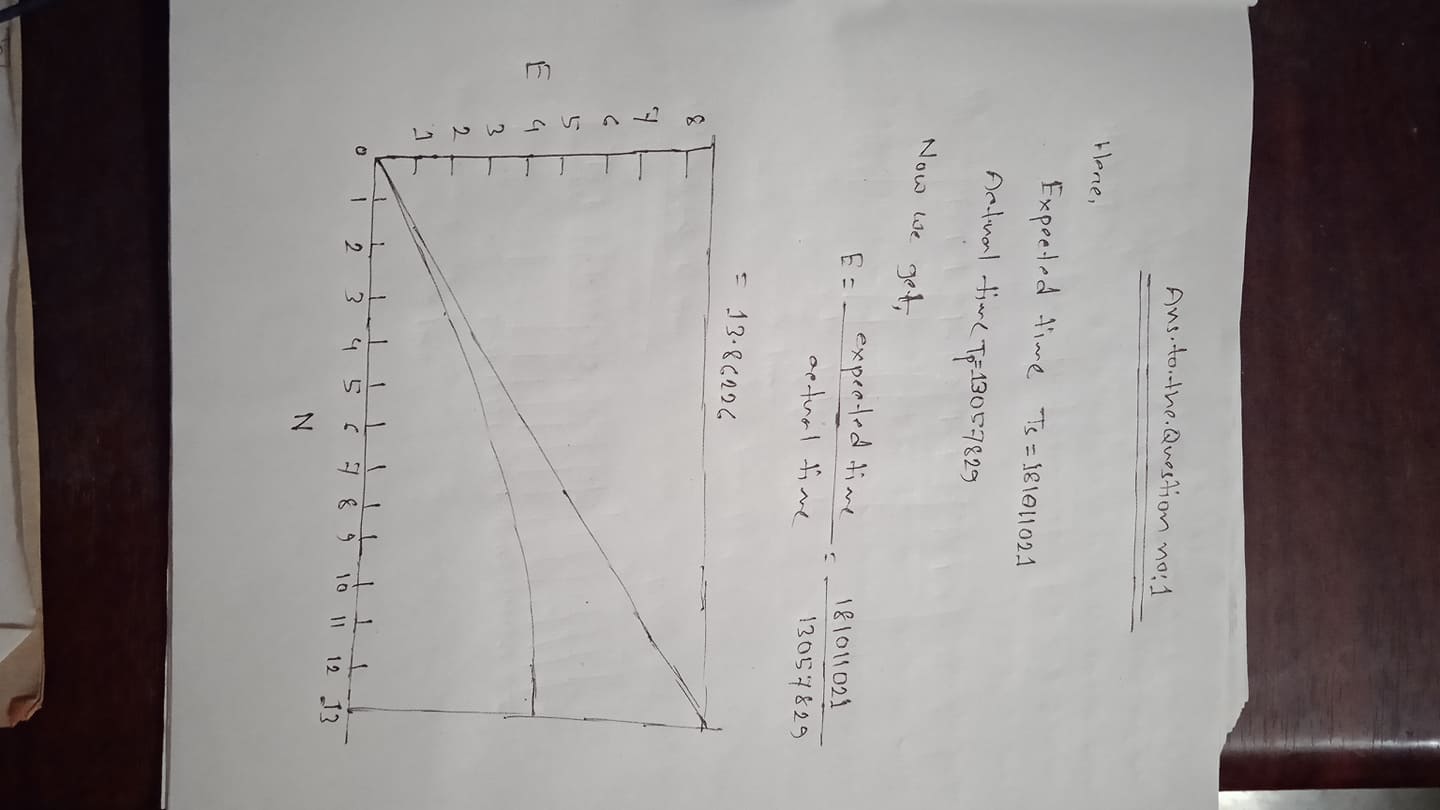 Ans.to.the.Question no:1
Here,
Expected time Ts = 181011021
Actual time Tp=13057829
Now we get,
E = expected time / actual time = 181011021 / 13057829
= 13.86226
8
7
6
5
E 4
3
2
1
0 1 2 3 4 5 6 7 8 9 10 11 12 13
N